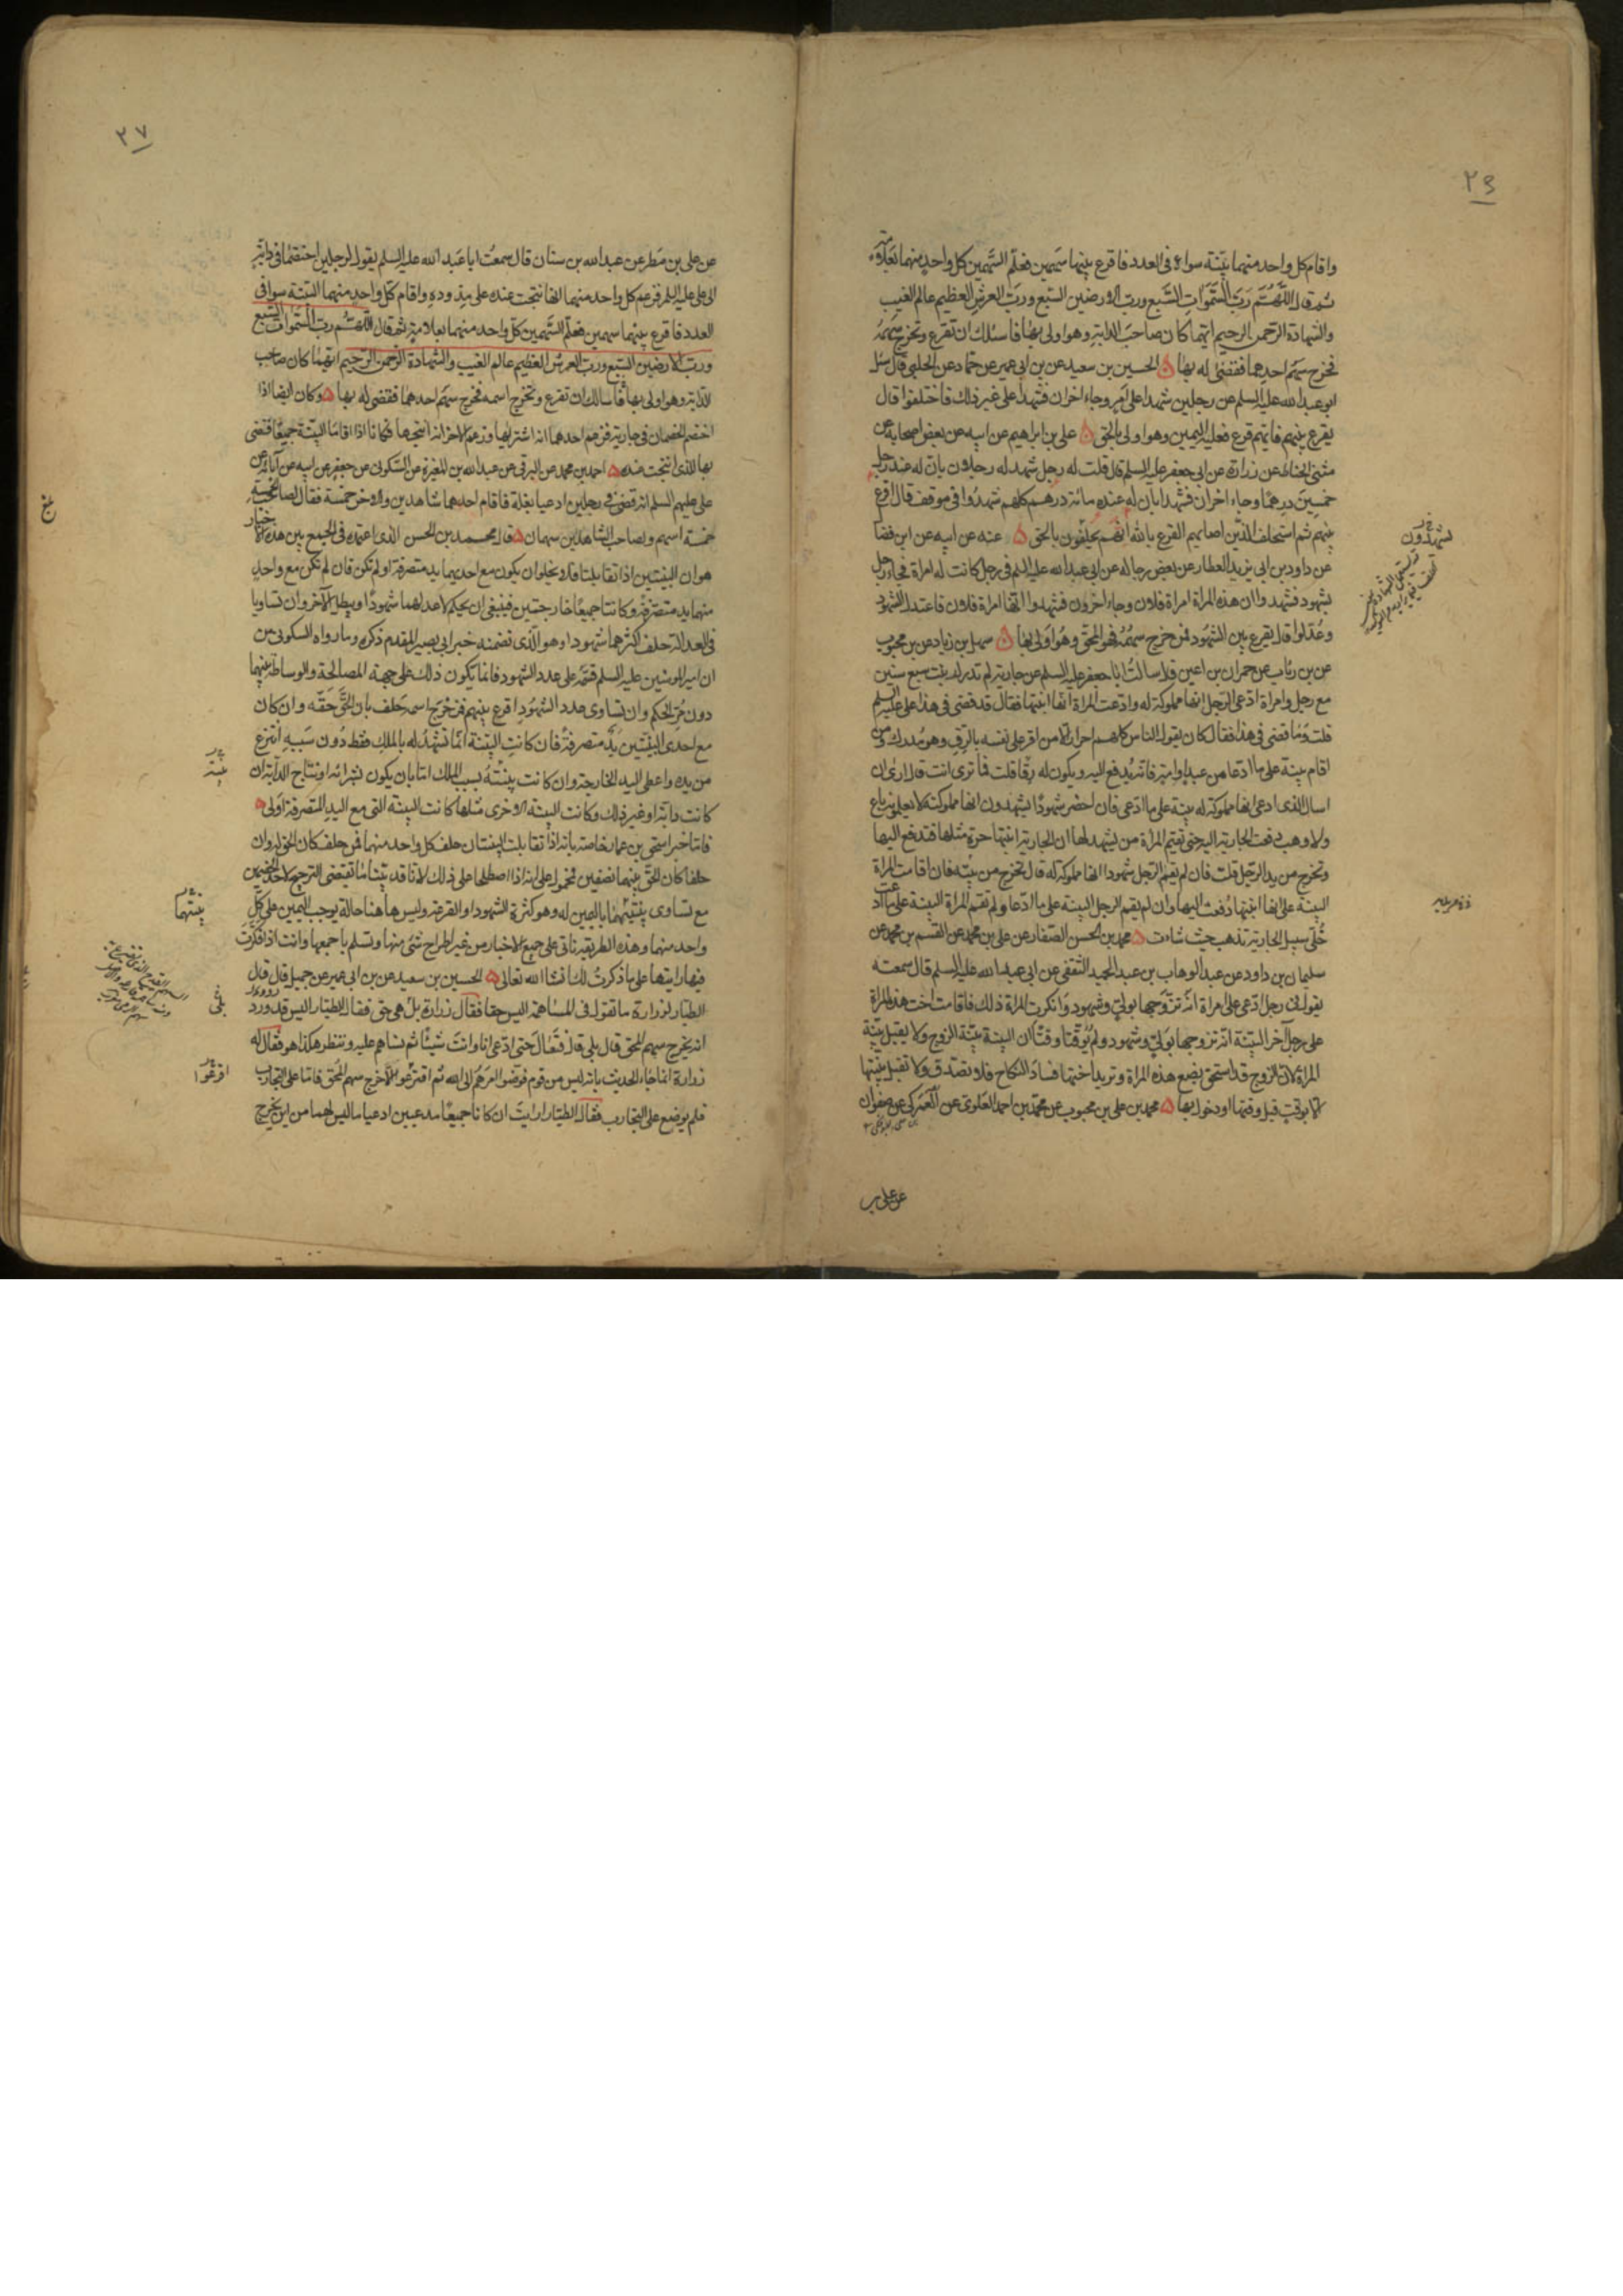 ٢٦
واقام كل واحد منهما بينة سواء فى العدد فاقرع بينهما سهمين فعلم السهمين كل واحد منهما بعلامة
ثم قال اللهم رب السموات السبع ورب الارضين السبع ورب العرش العظيم عالم الغيب
والشهادة الرحمن الرحيم ايهما كان صاحب الدابة وهو اولى بها فاسئلك ان تقرع وتخرج سهمه
فخرج سهم احدهما فقضى له بها ۵ الحسين بن سعيد عن بن ابى عمير عن حماد عن الحلبى قال سئل
ابو عبد الله عليه السلم عن رجلين شهدا على امر وجاء اخران فشهدا على غير ذلك فاختلفوا قال
يقرع بينهم فايهم قرع فعليه اليمين وهو اولى بالحق ۵ على بن ابراهيم عن ابيه عن بعض اصحابه عن
مثنى الحناط عن زرارة عن ابى جعفر عليه السلم قال قلت له رجل شهد له رجلان بان له عند رجل
خمسين درهما وجاء اخران فشهدا بان له عنده مائة درهم كلهم شهدوا فى موقف قال اقرع
بينهم ثم استحلف الذين اصابهم القرع بالله انهم يحلفون بالحق ۵ عنه عن ابيه عن ابن فضال
عن داود بن ابى يزيد العطار عن بعض رجاله عن ابى عبد الله عليه السلم فى رجل كانت له امراة فجاء رجل
بشهود فشهدوا ان هذه المراة امراة فلان وجاء اخرون فشهدوا انها امراة فلان فاعتدل الشهود
وعدلوا قال يقرع بين الشهود فمن خرج سهمه فهو المحق وهو اولى بها ۵ سهل بن زياد عن بن محبوب
عن بن رئاب عن حمران بن اعين قال سالت ابا جعفر عليه السلم عن جارية لم تدرك بنت سبع سنين
مع رجل وامراة ادعى الرجل انها مملوكة له وادعت المراة انها ابنتها فقال قد قضى فى هذا على عليه السلم
قلت وما قضى فى هذا فقال كان يقول الناس كلهم احرار الا من اقر على نفسه بالرق وهو مدرك ومن
اقام بينة على ما ادعا من عبد او امة فانه يدفع اليه ويكون له رقا قلت فما ترى انت قال ارى ان
اسال الذى ادعى انها مملوكة له بينة على ما ادعى فان احضر شهودا يشهدون انها مملوكته لا يعلمونه باع
ولا وهب دفعت الجارية اليه حتى تقيم المراة من يشهد لها ان الجارية ابنتها حرة مثلها فتدفع اليها
وتخرج من يد الرجل قلت فان لم يقم الرجل شهودا انها مملوكة له قال تخرج من يده فان اقامت المراة
البينة على انها ابنتها دفعت اليها وان لم يقم الرجل البينة على ما ادعا ولم تقم المراة البينة على ما ادعت
خلى سبيل الجارية تذهب حيث شاءت ۵ محمد بن الحسن الصفار عن على بن محمد عن القسم بن محمد عن
سليمان بن داود عن عبد الوهاب بن عبد الحميد الثقفى عن ابى عبد الله عليه السلم قال سمعته
يقول فى رجل ادعى على امراة انه تزوجها بولى وشهود وانكرت المراة ذلك فاقامت اخت هذه المراة
على رجل آخر البينة انه تزوجها بولى وشهود ولم يوقتا وقتا ان البينة بينة الزوج ولا يقبل بينة
المراة لان الزوج قد استحق بضع هذه المراة وتريد اختها فساد النكاح فلا تصدق ولا تقبل بينتها
الا بوقت قبل وقتها او دخول بها ۵ محمد بن على بن محبوب عن محمد بن احمد العلوى عن العمركى عن صفوان
عن على بن
يشهدون
٢٧
عن على بن مطر عن عبد الله بن سنان قال سمعت ابا عبد الله عليه السلم يقول ان رجلين اختصما فى دابة
الى على عليه السلم فزعم كل واحد منهما انها نتجت عنده على مذوده واقام كل واحد منهما البينة سوا فى
العدد فاقرع بينهما سهمين فعلم السهمين كل واحد منهما بعلامة ثم قال اللهم رب السموات السبع
ورب الارضين السبع ورب العرش العظيم عالم الغيب والشهادة الرحمن الرحيم ايهما كان صاحب
الدابة وهو اولى بها فاسالك ان تقرع وتخرج اسمه فخرج سهم احدهما فقضى له بها ۵ وكان ايضا اذا
اختصم الخصمان فى جارية فزعم احدهما انه اشتراها وزعم الاخر انه انتجها فكانا اذا اقاما البينة جميعا قضى
بها للذى انتجت عنده ۵ احمد بن محمد عن البرقى عن عبد الله بن المغيرة عن السكونى عن جعفر عن ابيه عن آبائه عن
على عليهم السلم انه قضى فى رجلين ادعيا بغلة فاقام احدهما شاهدين والاخر خمسة فقال لصاحب الخمسة
خمسة اسهم ولصاحب الشاهدين سهمان ۵ قال محمد بن الحسن الذى اعتمده فى الجمع بين هذه الاخبار
هو ان البينتين اذا تقابلتا فلا يخلو ان يكون مع احديهما يد متصرفة او لم تكن فان لم تكن مع واحد
منهما يد متصرفة وكانتا جميعا خارجتين فينبغى ان يحكم لاعدلهما شهودا ويبطل الآخر وان تساويا
فى العدالة حلف اكثرهما شهودا وهو الذى تضمنه خبر ابى بصير المقدم ذكره وما رواه السكونى من
ان امير المومنين عليه السلم قسمه على عدد الشهود فانما يكون ذلك على جهة المصالحة والوساطة بينهما
دون مر الحكم وان تساوى عدد الشهود اقرع بينهم فمن خرج اسمه حلف بان الحق حقه وان كان
مع احدى البينتين يد متصرفة فان كانت البينة انما تشهد له بالملك فقط دون سببه انتزع
من يده واعطى اليد الخارجة وان كانت بينته بسبب الملك اما بان يكون بشرائه او نتاج الدابة ان
كانت دابة او غير ذلك وكانت البينة الاخرى مثلها كانت البينة التى مع اليد المتصرفة اولى ۵
فاما خبر اسحق بن عمار خاصة بانه اذا تقابلت البينتان حلف كل واحد منهما فمن حلف كان الحق له وان
حلفا كان الحق بينهما نصفين فمحمول على انه اذا اصطلحا على ذلك لانا قد بينا ما تقتضى الترجيح لاحد الخصمين
مع تساوى بينتيهما باليمين له وهو كثرة الشهود او القرعة وليس هاهنا حالة يوجب اليمين على كل
واحد منهما وهذه الطريقة تاتى على جميع الاخبار من غير اطراح شئ منها وتسلم باجمعها وانت اذا فكرت
فيها رايتها على ما ذكرت لك ان شا الله تعالى ۵ الحسين بن سعيد عن بن ابى عمير عن جميل قال قال
الطيار لزرارة ما تقول فى المساهمة اليس حقا فقال زرارة بل هى حق فقال الطيار اليس قد ورد
انه يخرج سهم المحق قال بلى قال فتعال حتى ادعى انا وانت شيئا ثم نساهم عليه وننظر هكذا هو فقال له
زرارة انما جاء الحديث بانه ليس من قوم فوضوا امرهم الى الله ثم اقترعوا الا خرج سهم المحق فاما على التجارب
فلم يوضع على التجارب فقال الطيار ارايت ان كانا جميعا مدعيين ادعيا ما ليس لهما من اين يخرج
بينة
بينتهما
بلى
اقرعوا